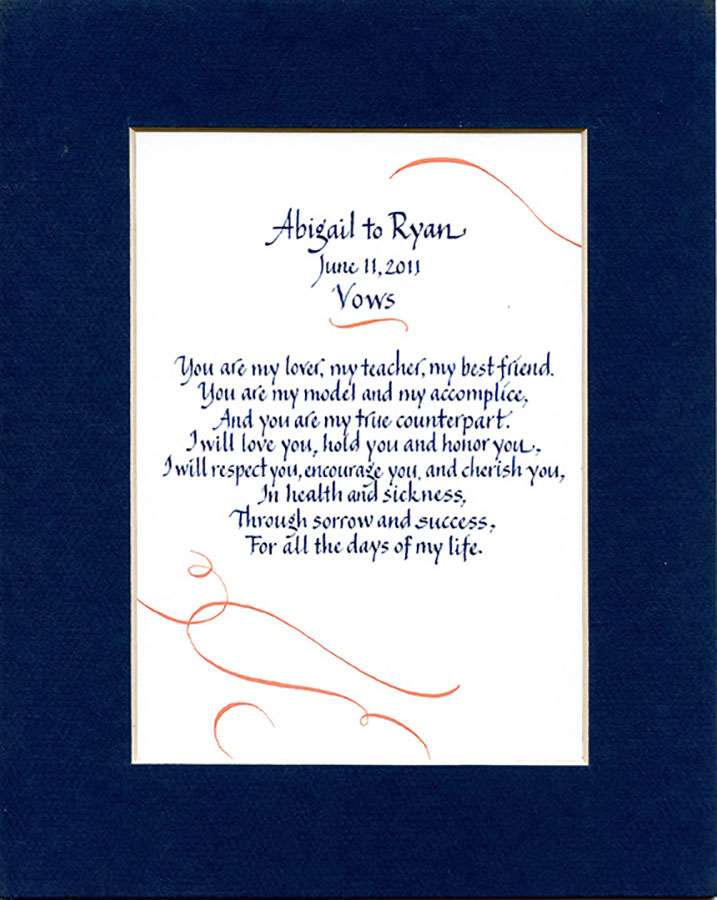 Abigail to Ryan
June 11, 2011
Vows
You are my lover, my teacher, my best friend.
You are my model and my accomplice,
And you are my true counterpart.
I will love you, hold you and honor you,
I will respect you, encourage you, and cherish you,
In health and sickness,
Through sorrow and success,
For all the days of my life.